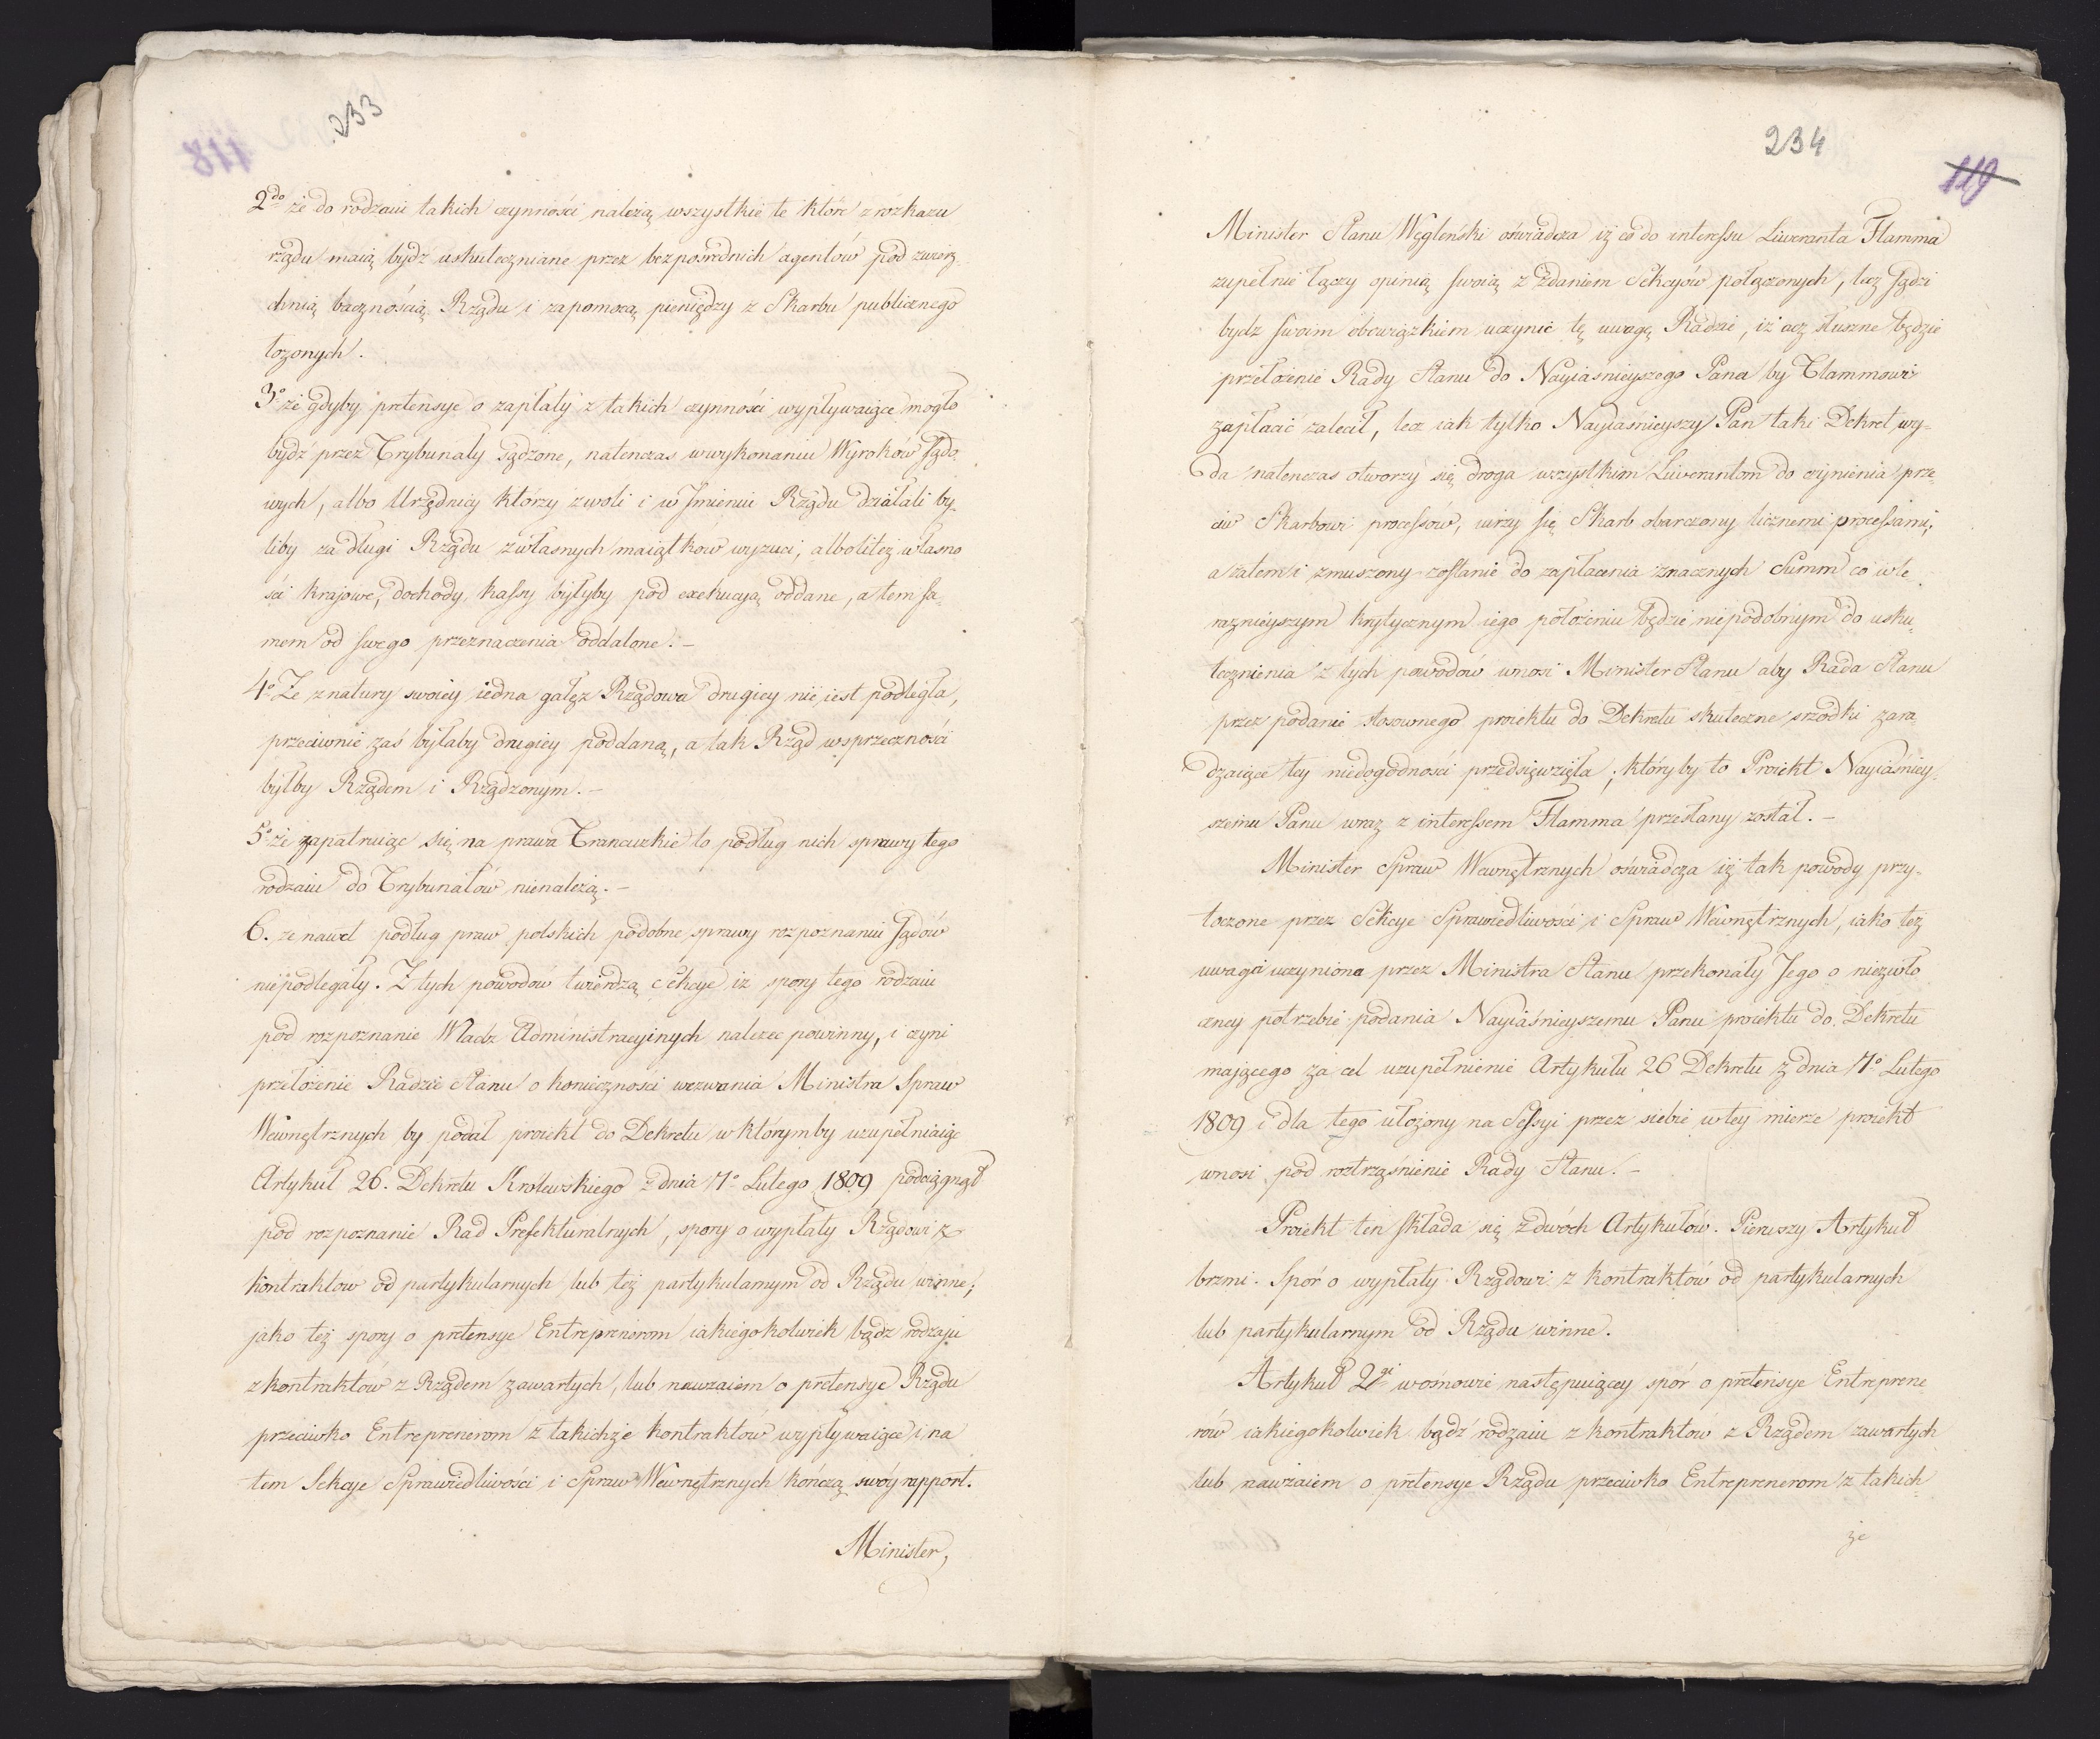 233
118
2do że do rodzaiu takich czynności należą wszystkie te które z rozkazu
rządu maią bydź uskuteczniane przez bezpośrednich agentów pod zwierz-
chnią bacznością Rządu i zapomocą pieniędzy z Skarbu publicznego
łożonych.
3o że gdyby pretensye o zapłaty z takich czynności wypływaiące mogło
bydź przez Trybunały sądzone, natenczas w wykonaniu Wyroków Sądo-
wych, albo Urzędnicy którzy z woli i w Jmieniu Rządu działali by-
liby za długi Rządu z własnych maiątkow wyzuci, albolitéż własno
ści krajowe, dochody, kassy byłyby pod exekucyą oddane, a tem sa-
mem od swego przeznaczenia oddalone. –
4o Ze z natury swoiey iedna gałęz Rządowa drugiey nie iest podległa,
przeciwnie zaś byłaby drugiey poddaną, a tak Rząd w sprzeczności
byłby Rządem i Rządzonym. –
5o że zapatruiąc się na prawa Francuzkie to podług nich sprawy tego
rodzaiu do Trybunałów nienależą. –
6. że nawet podług praw polskich podobne sprawy rozpoznaniu Sądów
niepodlegały. Z tych powodów twierdzą Sekcye iż spory tego rodzaiu
pod rozpoznanie Władz Administracyinych należec powinny, i czyni
przełożenie Radzie Stanu o konieczności wezwania Ministra Spraw
Wewnętrznych by podał proiekt do Dekretu w którymby uzupełniaiąc
Artykuł 26. Dekretu Królewskiego z dnia 7o Lutego 1809 podciągnął
pod rozpoznanie Rad Prefekturalnych, spory o wypłaty Rządowi z
kontraktow od partykularnych lub też partykularnym od Rządu winne;
jako też spory o pretensye Entreprenerom iakiegokolwiek bądz rodzaju
z kontraktów z Rządem zawartych, lub nawzaiem o pretensye Rządu
przeciwko Entreprenerom z takichże kontraktow wypływaiące i na
tem Sekcye Sprawiedliwości i Spraw Wewnętrznych kończą swóy rapport.
Minister,
234
119
Minister Stanu Węgleński oświadcza iż co do interessu Liweranta Flamma
zupełnie łączy opinią swoią z zdaniem Sekcyów połączonych, lecz sądzi
bydz swoim obowiązkiem uczynić tę uwagę Radzie, iż acz słuszne będzie
przełożenie Rady Stanu do Nayiaśnieyszego Pana by Flammowi
zapłacić zalecił, lecz iak tylko Nayiaśnieyszy Pan taki Dekret wy-
da natenczas otworzy się droga wszystkim Liwerantom do czynienia prze-
ciw Skarbowi processów, uirzy się Skarb obarczony licznemi processami,
a zatem i zmuszony zostanie do zapłacenia znacznych Summ co w te
raznieyszym krytycznym iego położeniu będzie niepodobnym do usku-
tecznienia z tych powodów wnosi Minister Stanu aby Rada Stanu
przez podanie stosownego proiektu do Dekretu skuteczne srzodki zara
dzaiące téy niedogodnosci przedsięwzięła; któryby to Proiekt Nayiaśniey-
szemu Panu wraz z interessem Flamma przesłany został. –
Minister Spraw Wewnętrznych oświadcza iż tak powody przy-
toczone przez Sekcye Sprawiedliwości i Spraw Wewnętrznych, iako też
uwaga uczyniona przez Ministra Stanu przekonały Jego o niezwło
czney potrzebie podania Nayiaśnieyszemu Panu proiektu do Dekretu
mającego za cel uzupełnienie Artykułu 26 Dekretu z dnia 7o Lutego
1809 i dla tego ułożony na Sessyi przez siebie w tey mierze proiekt
wnosi pod roztrząśnienie Rady Stanu. –
Proiekt ten składa się z dwóch Artykułów. Pierwszy Artykuł
brzmi. Spór o wypłaty Rządowi z kontraktów od partykularnych
lub partykularnym od Rządu winne.
Artykuł 2gi w osnowie następuiącey spór o pretensye Entreprene
rów iakiegokolwiek bądź rodzaiu z kontraktow z Rządem zawartych
lub nawzaiem o pretensye Rządu przeciwko Entreprenerom z takich-
że